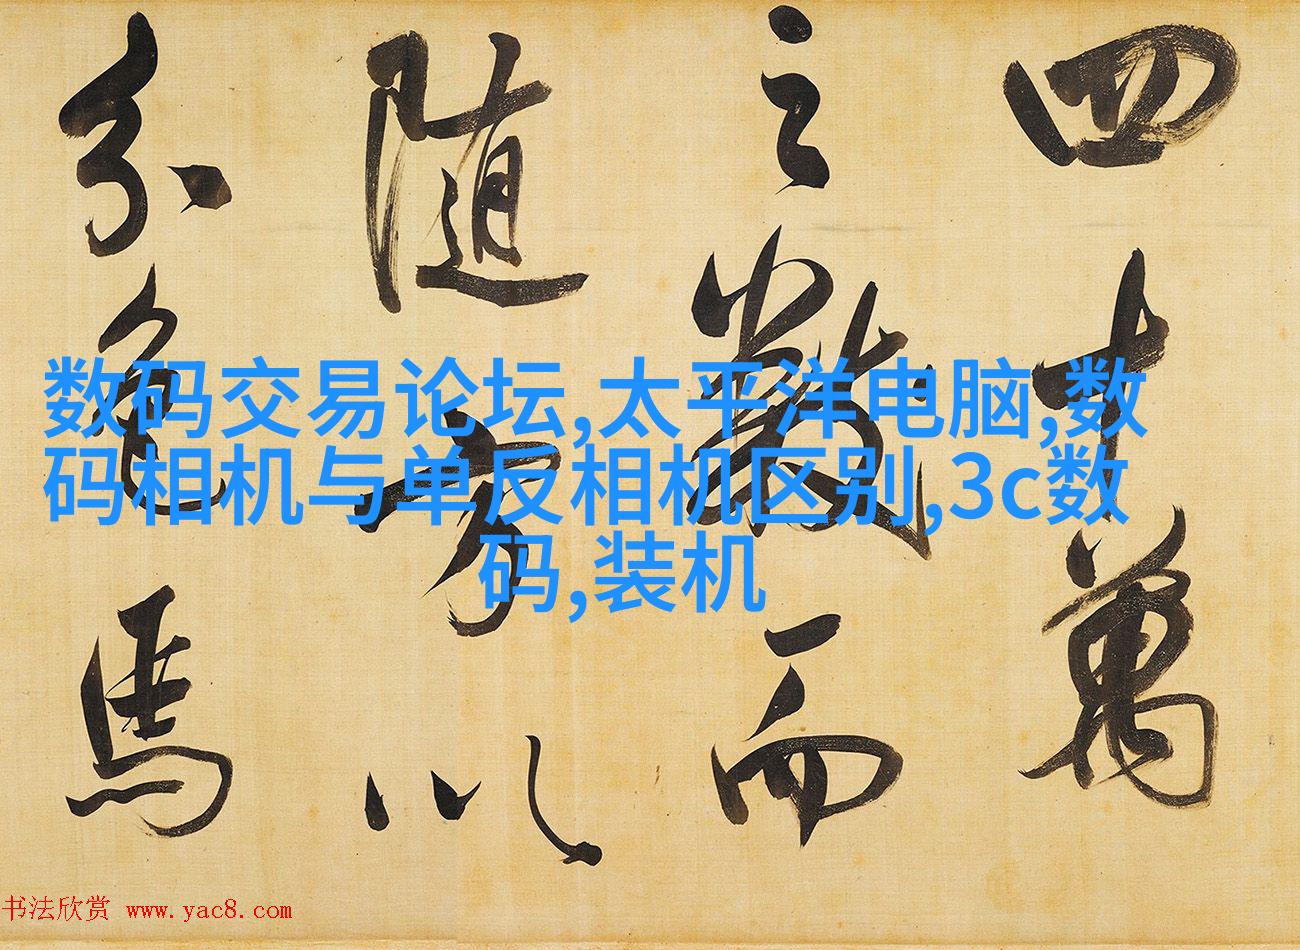 四十萬
之數而
随方以
分色馬
数码交易论坛,太平洋电脑,数
码相机与单反相机区别,3c数
码,装机
书法欣赏 www.yac8.com